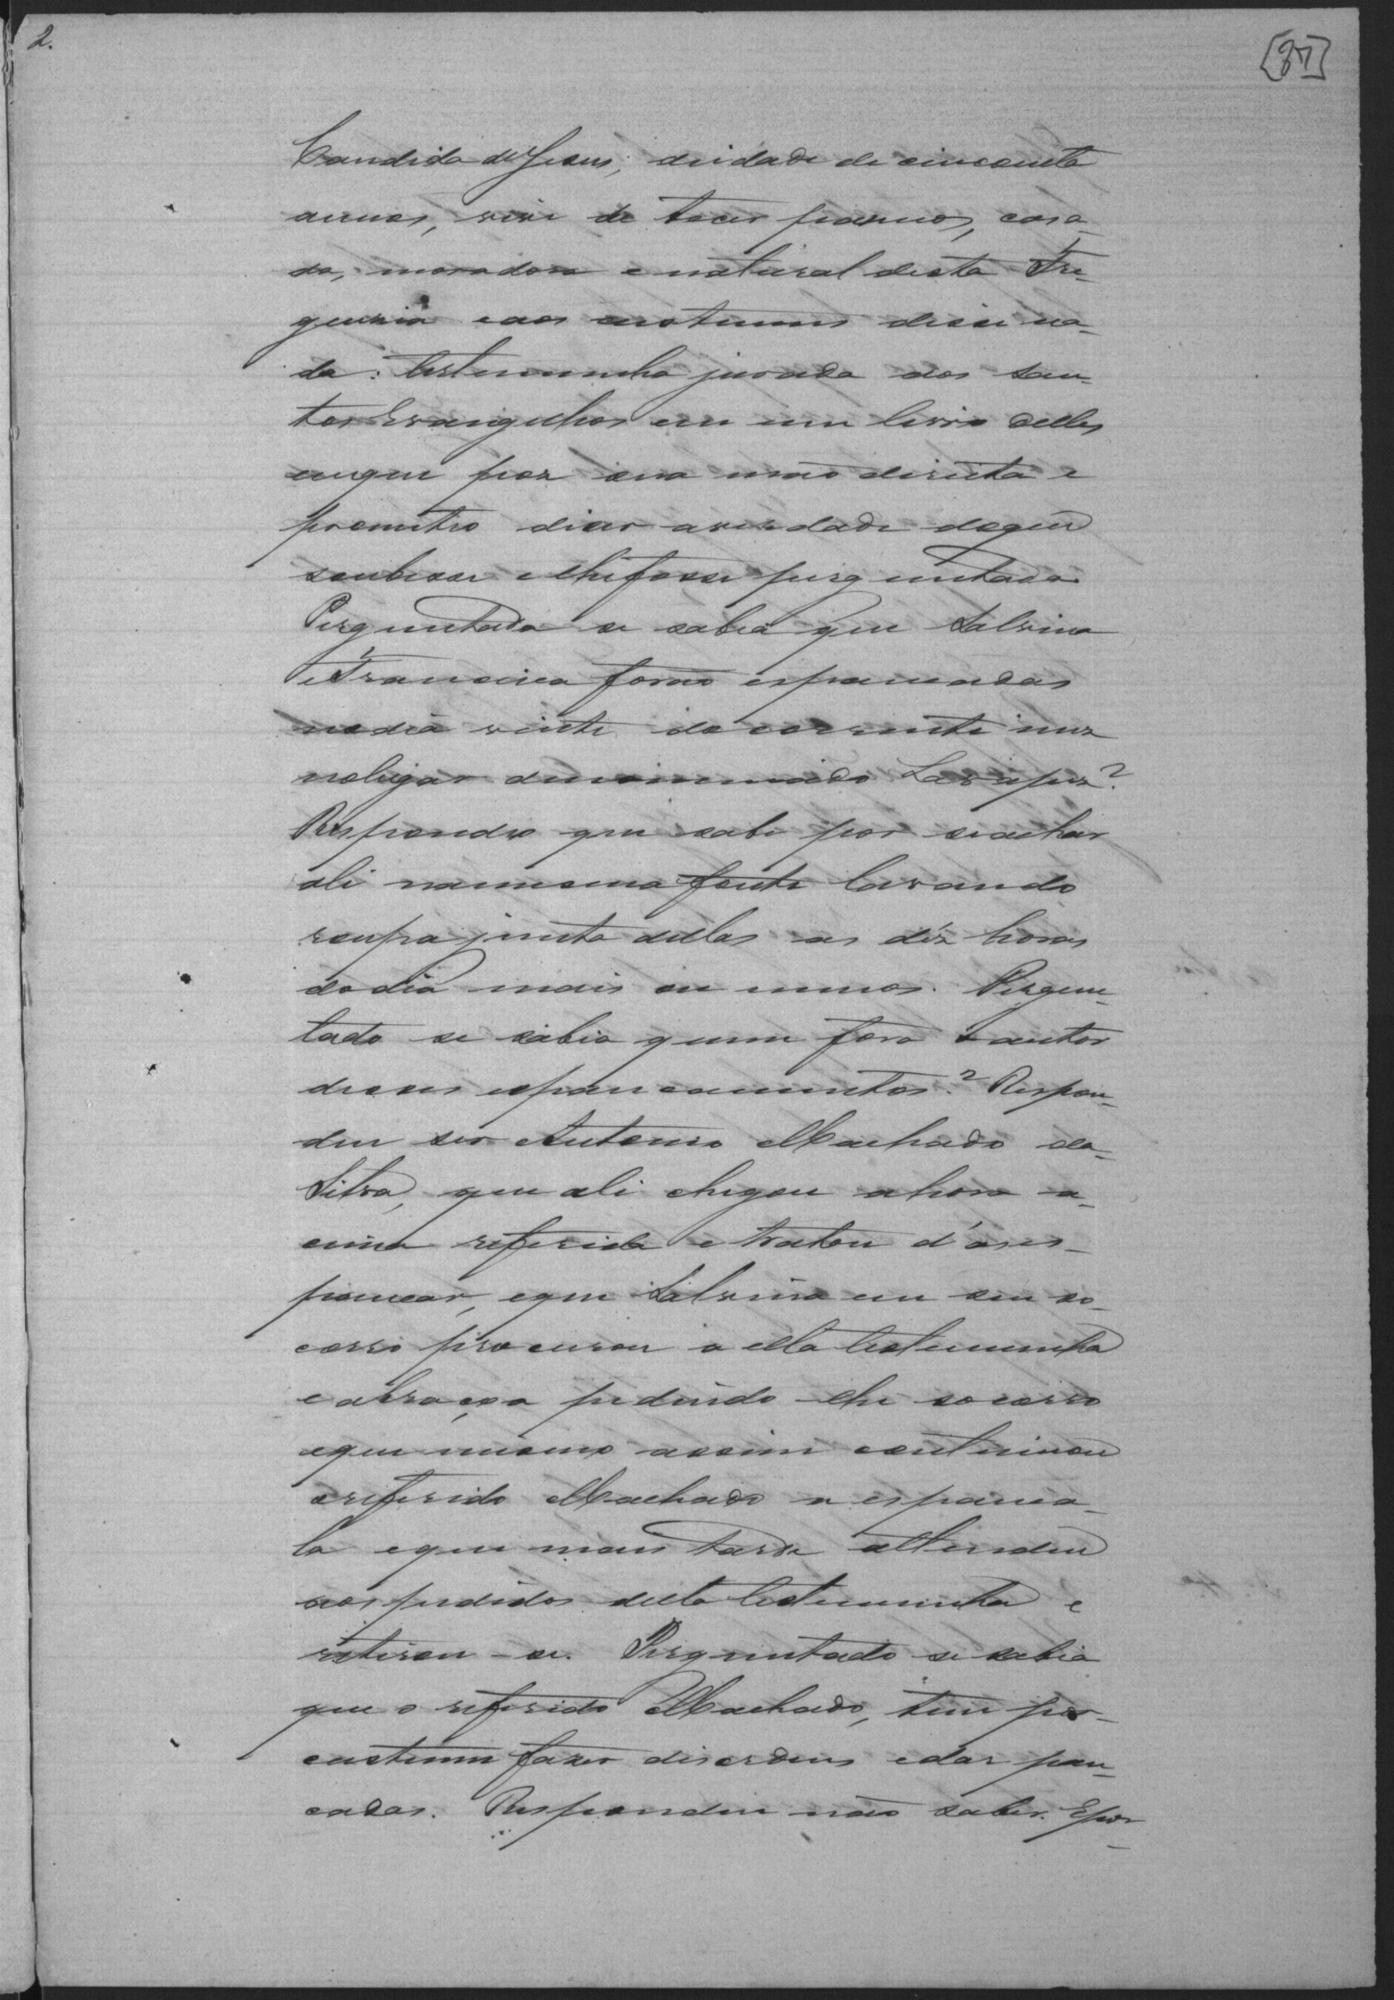 2.
[37]
Candida de Jesus, de idade de cincoenta
annos, vive de tecer pannos, casa-
da, moradora e natural desta Fre-
guezia e aos costumes disse na-
da. Testemunha jurada aos San-
tos Evangelhos em um livro delles
em que poz sua mão direita e
prometteo dizer a verdade do que
soubesse e lhe fosse perguntado.
Perguntada se sabia que Salvina
e Francisca forão espancadas
no dia vinte do corrente mez
no lugar denominado Lavapez?
Respondeo que sabe por se achar
ali na mesma fonte lavando
roupa junta dellas as déz horas
do dia mais ou menos. Pergun-
tado se sabia quem fora o autor
desses espancamentos? Respon-
deu ser Antonio Machado da
Silva, que ali chegou a hora a-
cima referida e tratou d'as es-
pancar, e que Salvina em seu so-
corro procurou a ella testemunha
e abraçoa pedindo lhe socorro
e que mesmo assim continuou
o referido Machado a espanca-
la e que mais tarde attendeu
aos pedidos della testemunha e
retirou-se. Perguntado se sabia
que o referido Machado, tem por
custume fazer disordens e dar pan-
cadas. Respondeu não saber. E por